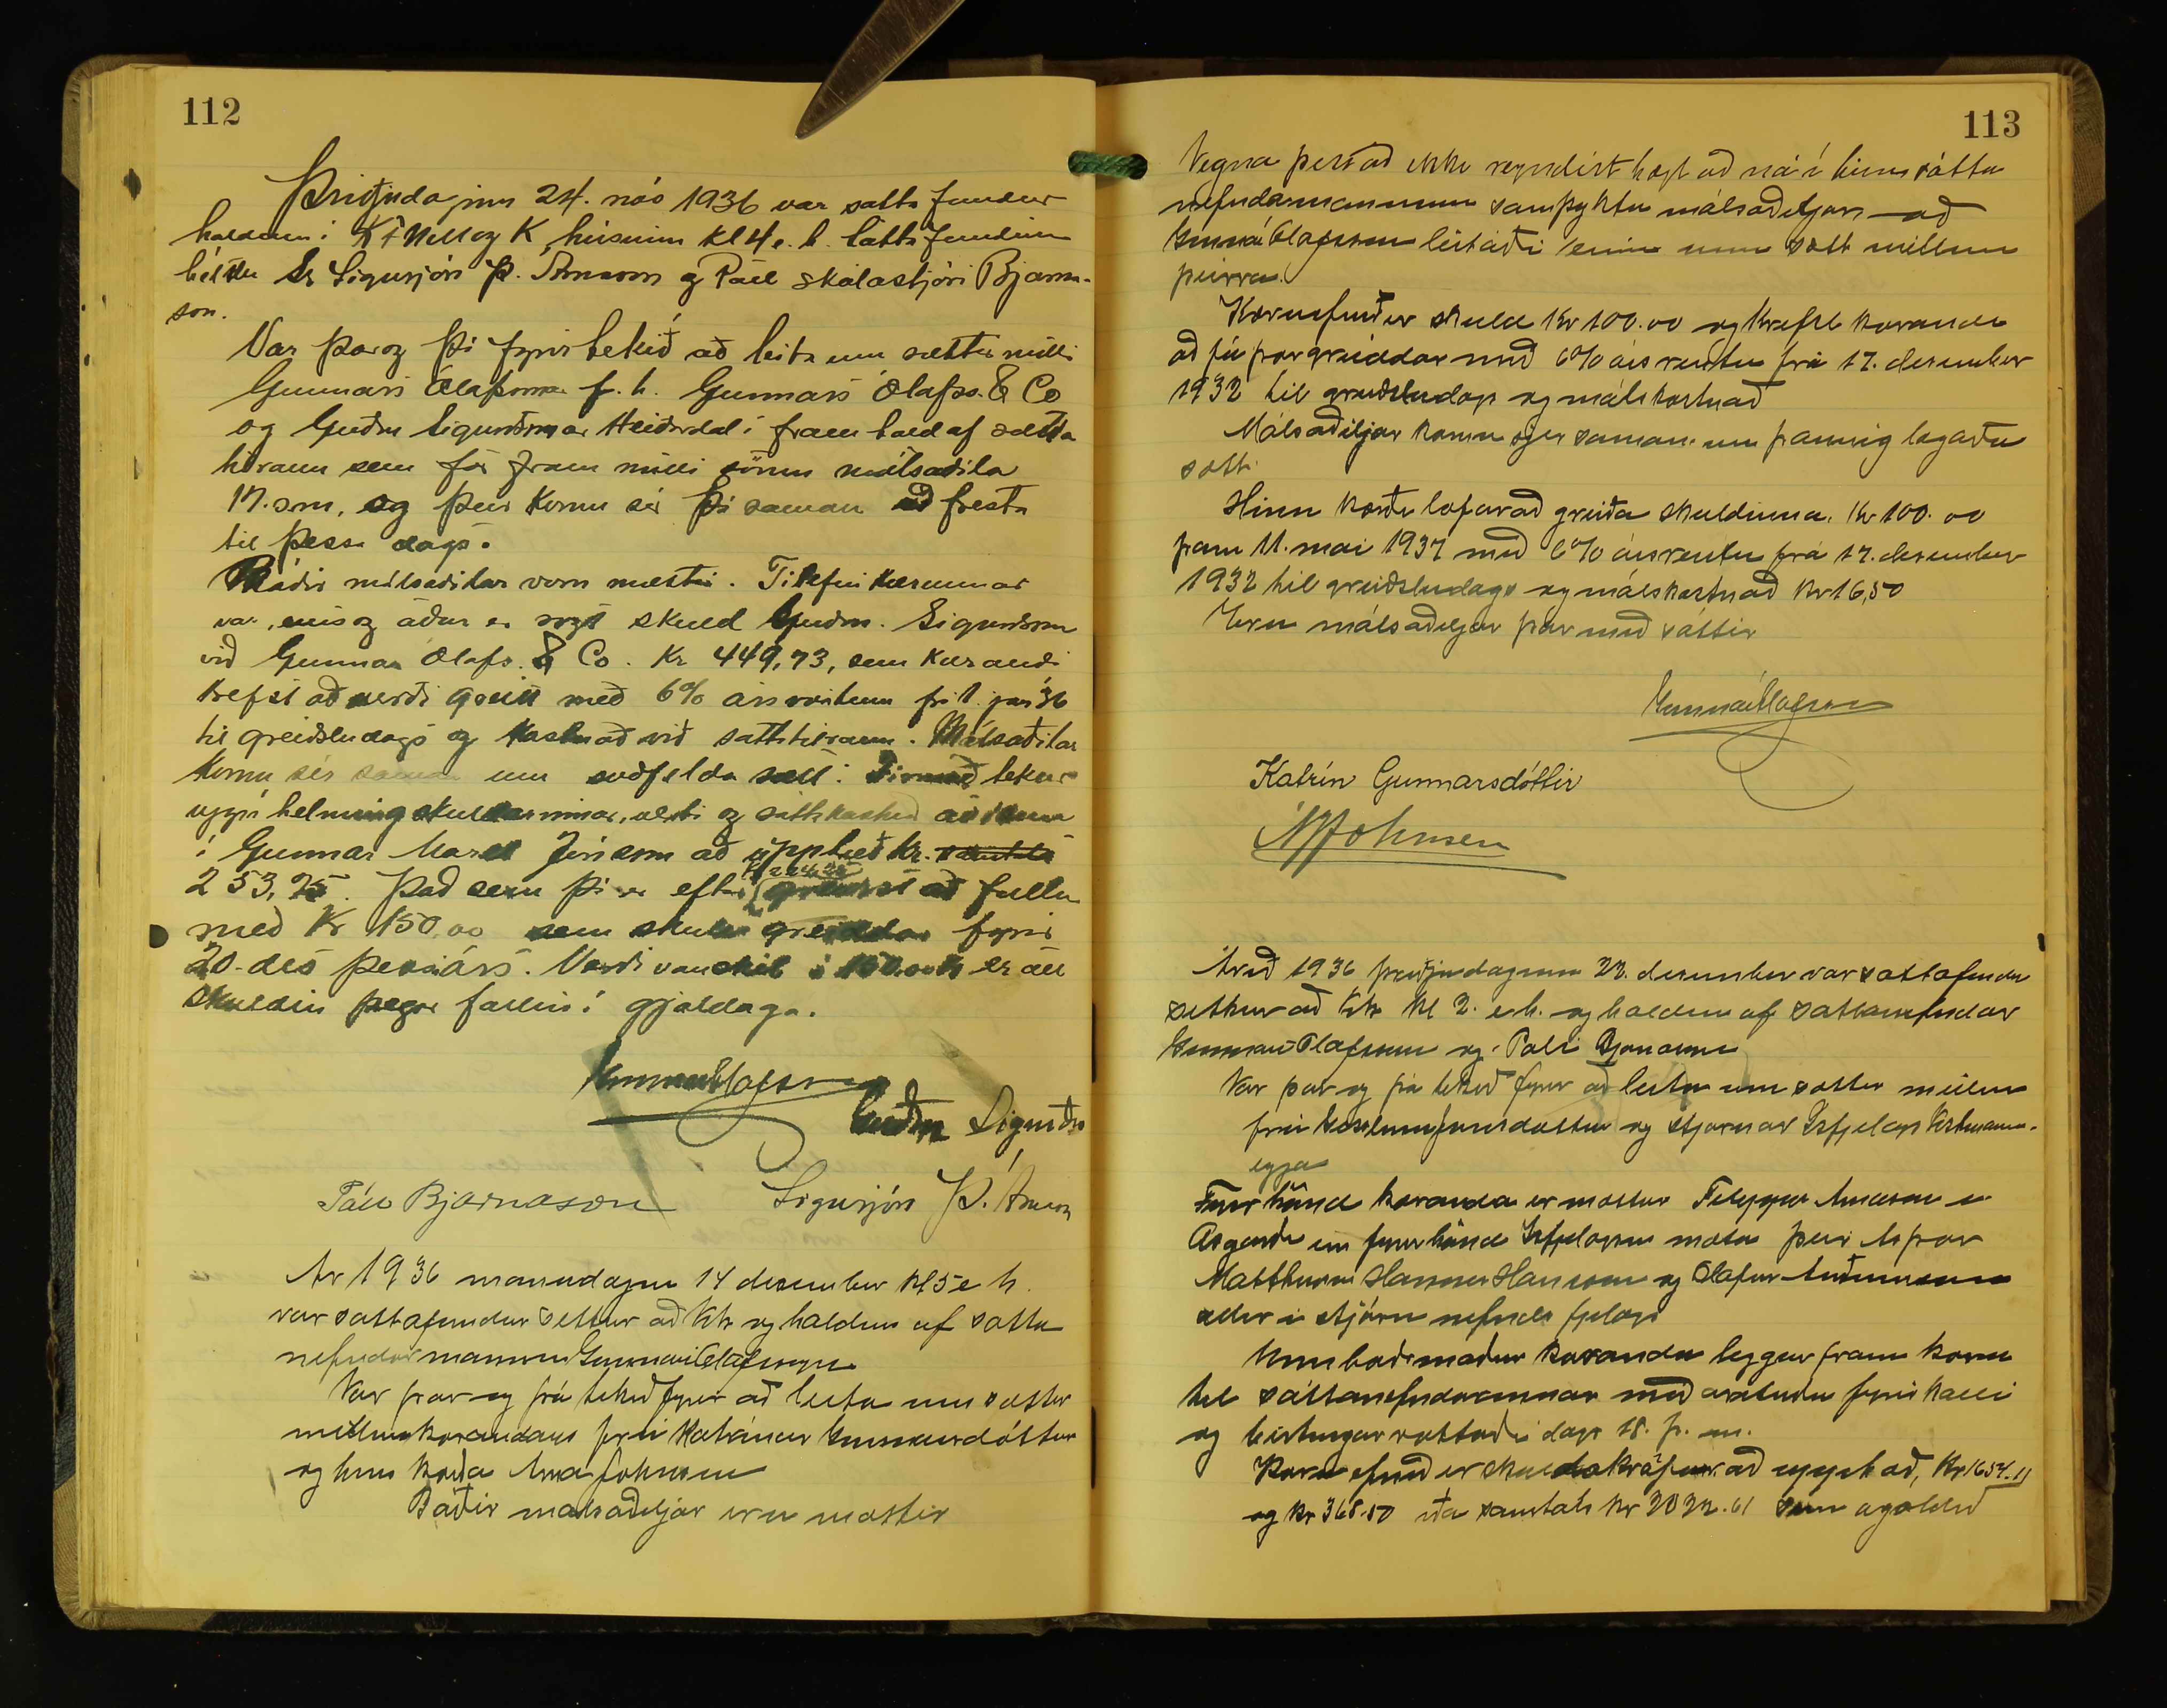 112
Þriðjudaginn 24. nóv 1936 var sátta fundur
haldinn í K.F. húsinu kl 4 e. h. Sáttafundinn
héldu Sr Sigurjón Þ. Árnason og Páll skólastjóri Bjarna-
son.
Var þar og þá fyrirtekið að leita um sættir milli
Gunnars Ólafssonar f. h. Gunnars Ólafss. & Co
og Guðm Sigurðssonar Heiðardal í framhald af sátta
tilraun sem fór fram milli sömu málsaðila
17. s.m. og þeir komu sér þá saman að fresta
til þessa dags.
Báðir málsaðilar voru mættir. Tilefni kærunnar
var, eins og áður er sagt skuld Guðm. Sigurðsson
við Gunnar Ólafs. & Co. Kr 449,73, sem kærandi
krefst að verði greitt með 6% ársvöxtum frá 1. jan 36
til greiðsludags og kostnað við sáttatilraun. Málsaðilar
komu sér saman um svofelda sætt: Firmað tekur
uppí helming skuldarinnar, vexti og sáttakostnað ávísun
í Gunnar Marel Jónsson að upphæð kr.
253,75. Það sem þá er eftir greiðist að fullu
með Kr 150,00 sem skulu greiddar fyrir
20. des þessa árs. Verði vanskil á er öll
skuldin þegar fallin í gjalddaga.
Gunnar Ólafsson
Guðm Sigurðss
Páll Bjarnason Sigurjón Þ. Árnason
Ár 1936 mánudaginn 14 desember kl 5 e h.
var sáttafundur settur að hk og haldinn af sátta
nefndar manninum Gunnari Ólafssyni
Var þar og þá tekið fyrir að leita um sættir
millum kærandans frú Katrínar Gunnarsdóttur
og hins kærða Árna Johnsen
Báðir málsaðiljar eru mættir
113
Vegna þess að ekki reyndist hægt að ná í hinn sátta
nefndarmanninn samþyktu málsaðiljar að
Gunnar Ólafsson leitaði einn um sætt millum
þeirra.
Kæruefnið er skuld Kr 100.00 og krefst kærandi
að fá þær greiddar með 6% ársrentu frá 17. desember
1932 til greiðsludags og málskostnað
Málsaðiljar komu sjer saman um þannig lagaða
sætt.
Hinn kærði lofar að greiða skuldina Kr 100.00
þann 11. maí 1937 með 6% ársrentu frá 17. desember
1932 til greiðsludags og málskostnað kr 16,50
Eru málsaðiljar þar með sáttir
Gunnar Ólafsson
Katrín Gunnarsdóttir
Á Johnsen
Árið 1936 þriðjudaginn 22. desember var sáttafundur
settur að hk kl 2. e.h. og haldinn af sáttanefndar
Gunnari Ólafssyni og Páli Bjarnasyni
Var þar og þá tekið fyrir að leita um sættir millum
frú Jónsdóttur og stjórnar Ísfjelags Vestmanna-
eyja
Fyrir hönd kæranda er mættur Filippus Árnason í
Ásgarði en fyrir hönd Ísfjelagsins mæta þeir Ástþór
Matthíasson Hannes Hansson og Ólafur Auðunsson
allir í stjórn nefnds fjelags
Umboðsmaður kæranda leggur fram kæru
til sáttanefndarinnar með árituðu fyrirkalli
og birtingarvottorði dags 18. þ. m.
Kæruefnið er skuldakröfur að upphæð, Kr 1654.11
og kr 368.50 eða samtals kr 2022.61 sem ógoldið